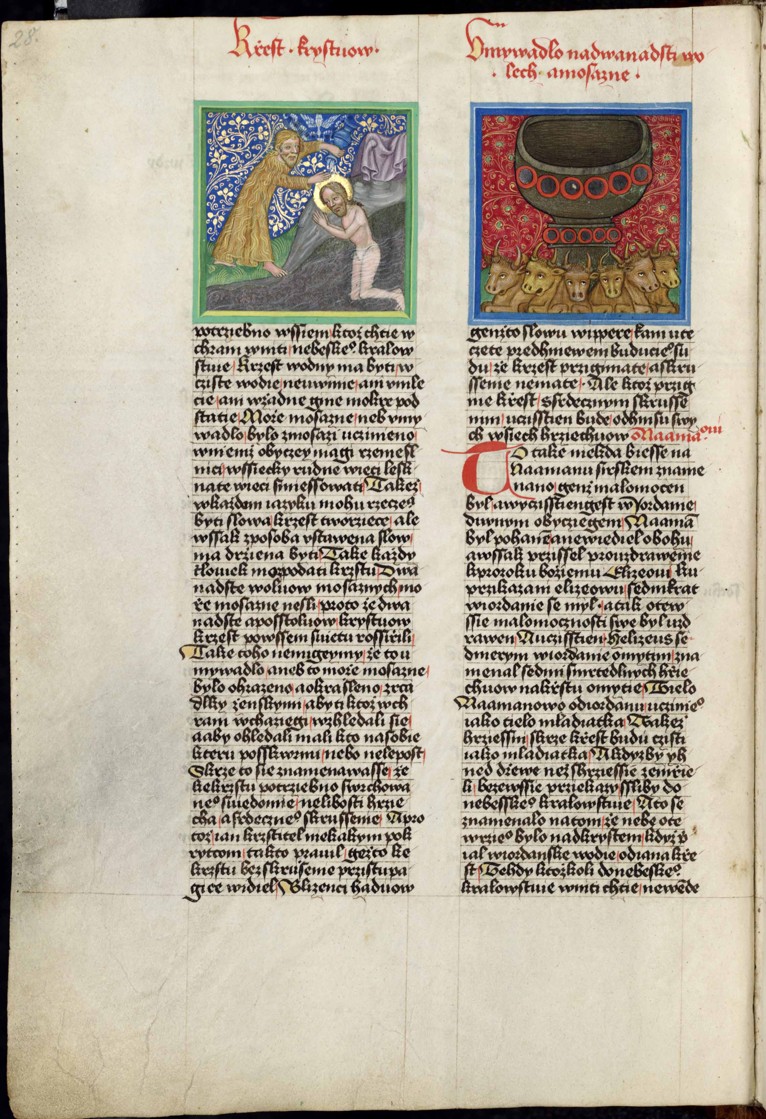 28.
Křest krystuow
potrziebno wssiem ktoz chtie w
chram wniti nebeskeº kralow
stwie Krzest wodny ma byti w
cziste wodie ne vwinie ani vmle
cie ani wzadne gine mokre pod
statie More mosazne neb vmy
wadlo bylo zmosazi uczineno
nimz obyczey magi rzemesl
nici wssiecky rudne wieci lesk
nate wieci smiessowati Takez
wkazdem iazyku mohu rzeczeº
byti slowa krzest tworziece ale
wssak zposoba vstawena slow
ma drziena byti Take kazdy
tlowiek moz podati krzstu Dwa
nadste woluow mosaznych mo
re mosazne nesli proto ze dwa
nadste aposstoluow krystuow
krzest powssem swietu rossirili
Take toho nemigeymy ze to u
mywadlo aneb to more mosazne
bylo obrazeno a okrasleno zrca
dlky zenskymi aby ti ktoz wch
ram wchaziegi wzhledali sie
a aby ohledali mali kto nasobie
kteru posskwrnu nebo nelepost
Skrze to sie znamenawasse ze
kekrzstu potrziebno swrchowa
neº swiedomie nelibosti hrzie
cha a srdeczneº skrussenie A pro
toz ian krzstitel niekakym pok
rytcom takto prawil gezto ke
krzstu bez skrusenie przistupa
gice widiel Blizenci haduow
Vmywadlo na dwanadsti wo
lech a mosazne
genzto slowu wippere kam vte
czete przed hniewem buducieº su
du ze krzest przigimate a skru
ssenie nemate Ale ktoz przig
me křest srdecznym skrusse
nim ucisstien bude odhniesu swy
ch wsiech hrziechuow Naama
TO take niekda biesse na
Naamanu sirskem zname
nano genz malomocen
byl a wyczisstien gest w Iordanie
diwnym obyczegem Naamā
byl pohan a newiediel o bohu
a wssak przissel pro uzdrawenie
k proroku boziemu Elizeowi Ku
przikazani elizeowu sedmkrat
w iordanie se myl a tak otew
ssie malomocnosti swe byl uzd
rawen A ucisstien Helizeus se
dmerym w iordanie omytim zna
menal sedm smrtedlnych hrie
chuow na křstu omytie Tielo
Naamanowo od iordanu uczinieº
iako tielo mladiatka Takez
hrziessni skrze křest budu czisti
iako mladiatka A kdyzby yh
ned drzewe nez shrziessie zemrie
li bezewssie przekazy ssliby do
nebesskeº kralowstwie A to se
znamenalo na tom ze nebe ote
wrzieº bylo nad krystem kdyz p
ial w iordanske wodie od iana kře
st Tehdy ktozkoli do nebeskeº
kralowstwie wniti chtie newede